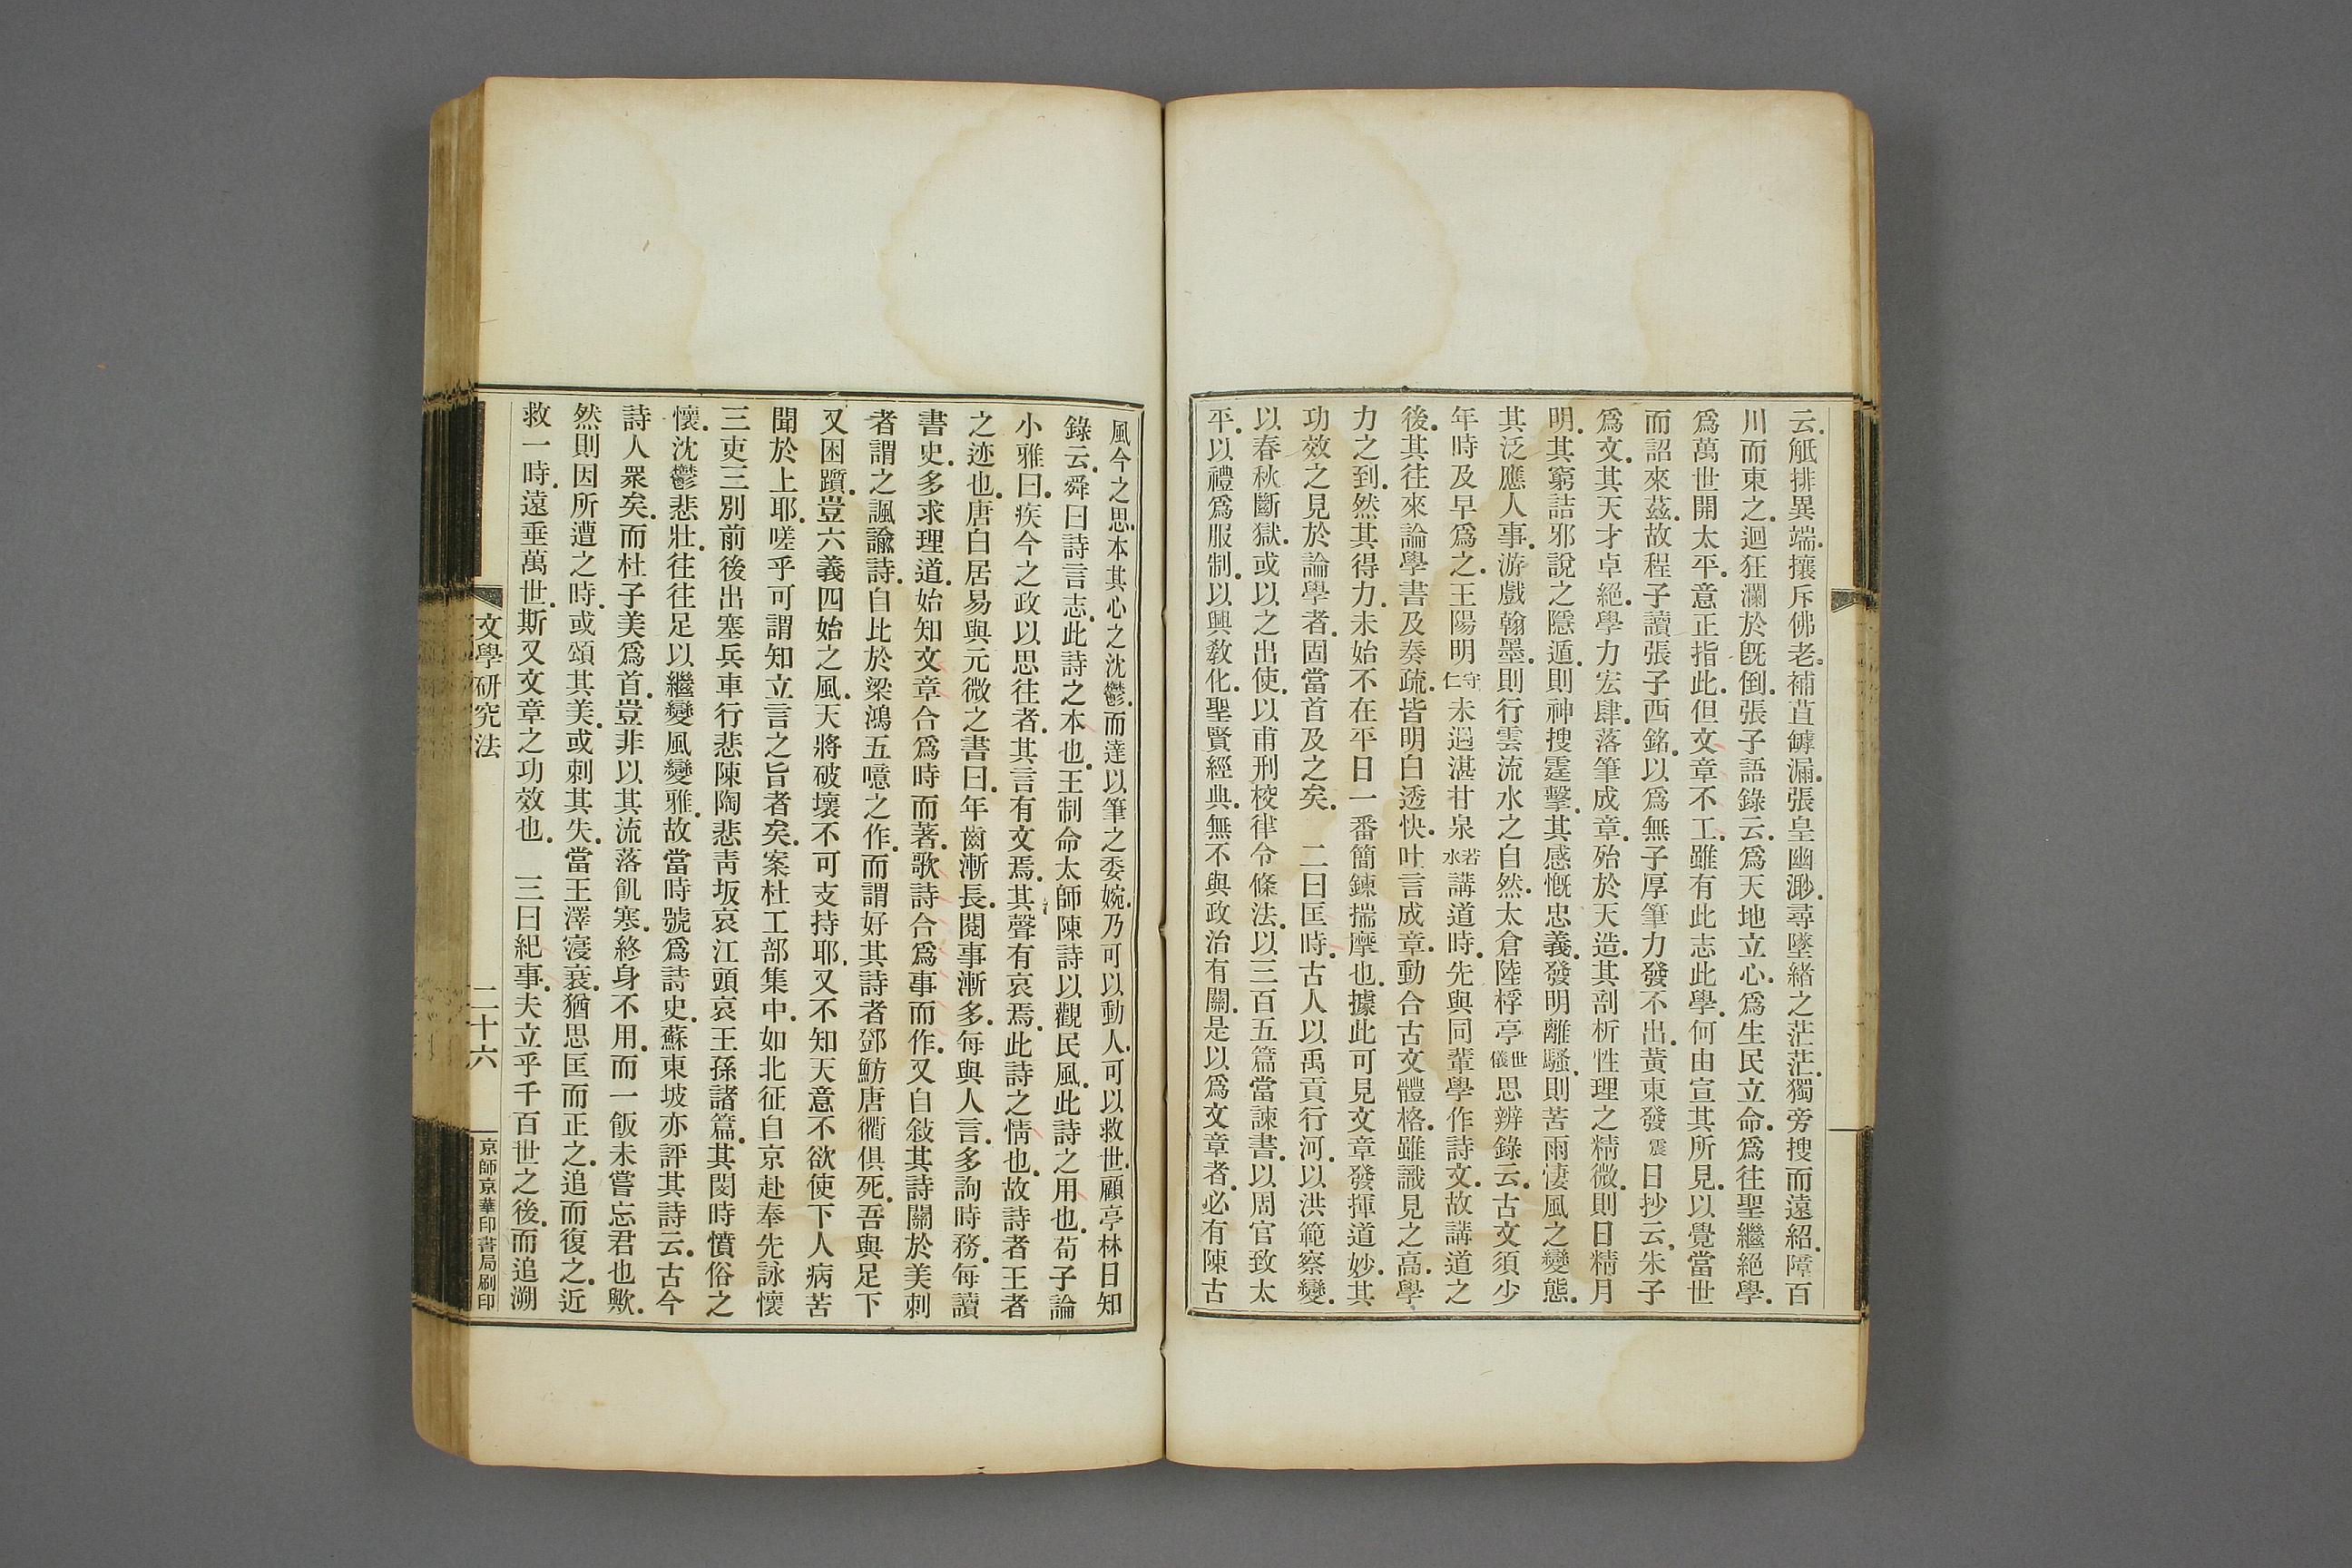 云觝排異端攘斥佛老補苴罅漏張皇幽渺尋墜緒之茫茫獨旁搜而遠紹障百
川而東之迴狂瀾於既倒張子語錄云爲天地立心爲生民立命爲往聖繼絕學
爲萬世開太平意正指此但文章不工雖有此志此學何由宣其所見以覺當世
而詔來茲故程子讀張子西銘以爲無子厚筆力發不出黃東發震日抄云朱子
爲文其天才卓絕學力宏肆落筆成章殆於天造其剖析性理之精微則日精月
明其窮詰邪說之隱遁則神搜霆擊其感慨忠義發明離騷則苦雨悽風之變態
其泛應人事游戲翰墨則行雲流水之自然太倉陸桴亭世儀思辨錄云古文須少
年時及早爲之王陽明守仁未遇湛甘泉若水講道時先與同輩學作詩文故講道之
後其往來論學書及奏疏皆明白透快吐言成章動合古文體格雖識見之高學
力之到然其得力未始不在平日一番簡鍊揣摩也據此可見文章發揮道妙其
功效之見於論學者固當首及之矣 二曰匡時古人以禹貢行河以洪範察變
以春秋斷獄或以之出使以甫刑校律令條法以三百五篇當諫書以周官致太
平以禮爲服制以興敎化聖賢經典無不與政治有關是以爲文章者必有陳古
風今之思本其心之沈鬱而達以筆之委婉乃可以動人可以救世顧亭林日知
錄云舜曰詩言志此詩之本也王制命太師陳詩以觀民風此詩之用也荀子論
小雅曰疾今之政以思往者其言有文焉其聲有哀焉此詩之情也故詩者王者
之迹也唐白居易與元微之書曰年齒漸長閱事漸多每與人言多詢時務每讀
書史多求理道始知文章合爲時而著歌詩合爲事而作又自敍其詩關於美刺
者謂之諷諭詩自比於梁鴻五噫之作而謂好其詩者鄧魴唐衢俱死吾與足下
又困躓豈六義四始之風天將破壞不可支持耶又不知天意不欲使下人病苦
聞於上耶嗟乎可謂知立言之旨者矣案杜工部集中如北征自京赴奉先詠懷
三吏三別前後出塞兵車行悲陳陶悲靑坂哀江頭哀王孫諸篇其閔時憤俗之
懷沈鬱悲壯往往足以繼變風變雅故當時號爲詩史蘇東坡亦評其詩云古今
詩人眾矣而杜子美爲首豈非以其流落飢寒終身不用而一飯未嘗忘君也歟
然則因所遭之時或頌其美或刺其失當王澤寖衰猶思匡而正之追而復之近
救一時遠垂萬世斯又文章之功效也 三曰紀事夫立乎千百世之後而追溯
文學研究法 二十六 京師京華印書局刷印